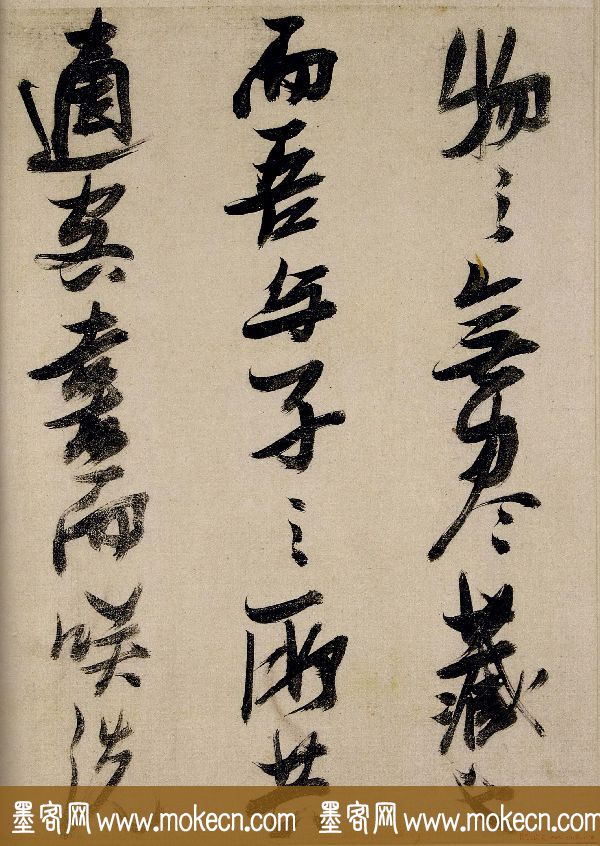 物之無尽藏也
而吾与子之所共
適客喜而咲洗
墨客网 www.mokecn.com 墨客网 www.mokecn.com